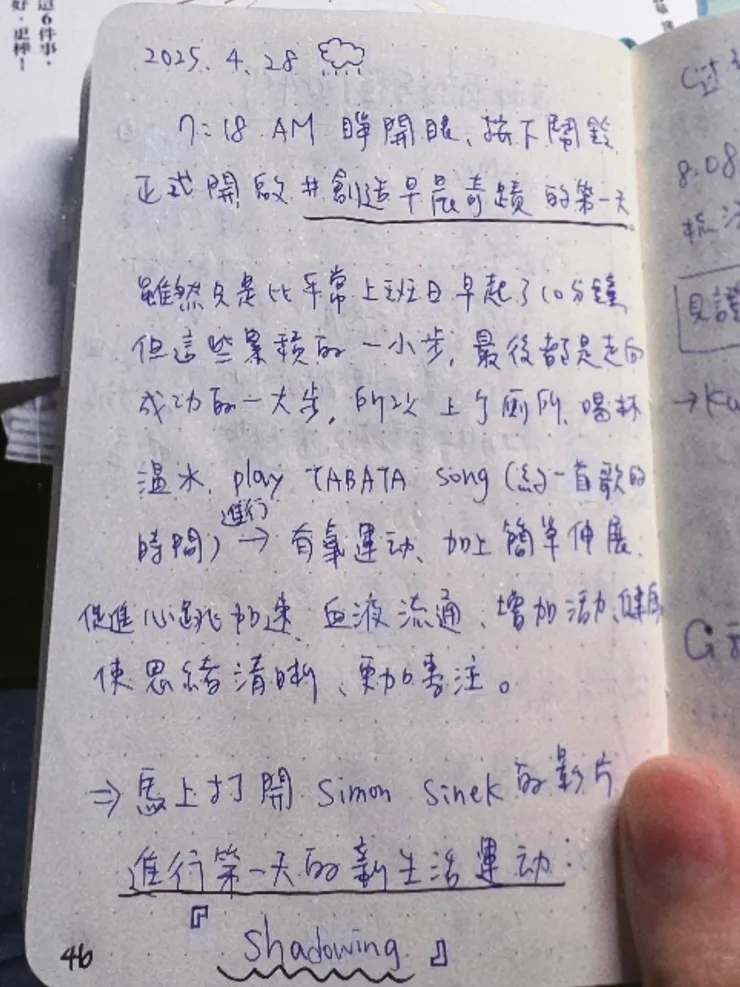 這6件事,
好,更棒!
2025. 4. 28
7:18 AM 睜開眼、按下鬧鈴
正式開啟 #創造早晨奇蹟 的第一天。
雖然只是比平常上班日早起了10分鐘,
但這些累積的一小步,最後都是走向
成功的一大步,所以上了廁所、喝杯
溫水、play TABATA song (約一首歌的
時間) → 進行有氧運动、加上簡單伸展,
促進心跳加速、血液流通、增加活力、健康
使思緒清晰、更加專注。
⇒ 馬上打開 Simon Sinek 的影片
進行第一天的新生活運动:
『 Shadowing 』
46
8:08
梳洗
見證
→ Ku